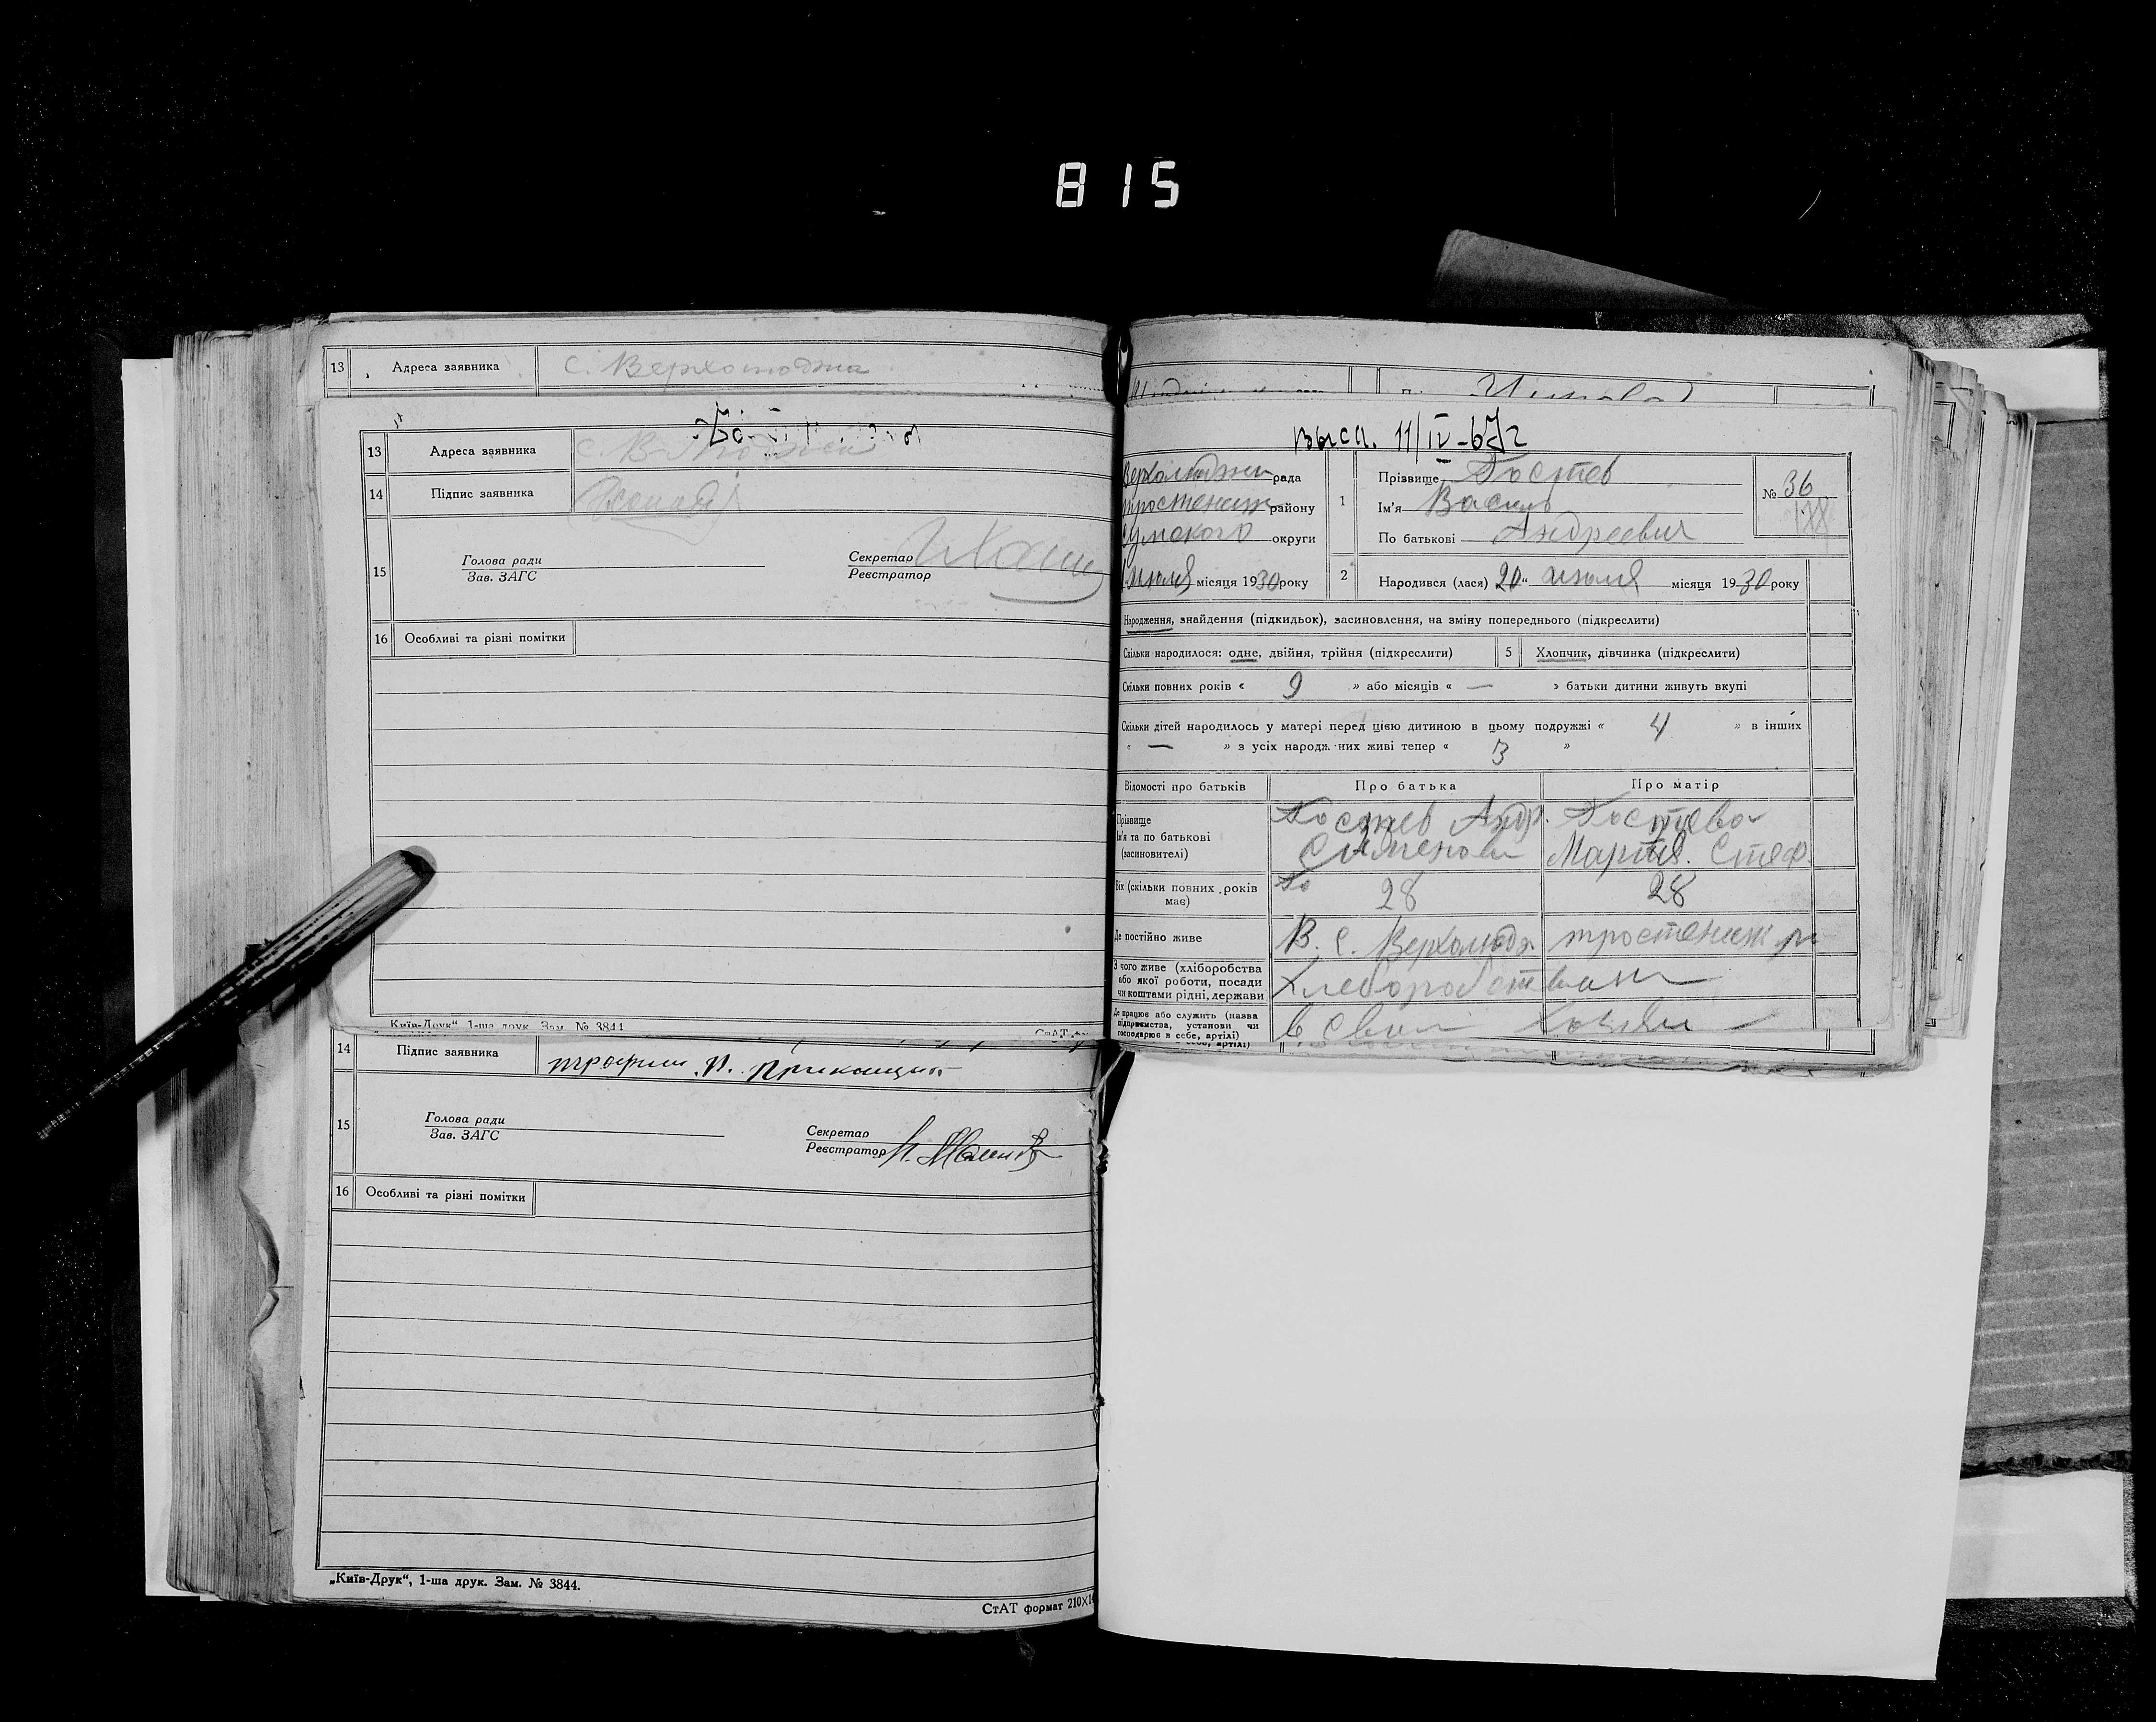 815
13 Адреса заявника с. Верхолюджа
13 Адреса заявника с. В-Люджа
14 Підпис заявника
15 Голова ради
Зав. ЗАГС
Секретар
Реєстратор
16 Особливі та різні помітки
„Київ-Друк“, 1-ша друк. Зам. № 3844
СтАТ
14 Підпис заявника
15 Голова ради
Зав. ЗАГС
Секретар
Реєстратор
16 Особливі та різні помітки
„Київ-Друк“, 1-ша друк. Зам. № 3844.
СтАТ формат 210×1
11/IV-67г
Верхолюджи рада
тростенецк району
Сумского округи
июля місяця 1930 року
1 Прізвище Гостев
Ім'я Василь
По батькові Андреевич
№ 36
2 Народився (лася) 20 „ июля місяця 1930 року
Народження, знайдення (підкидьок), засиновлення, на зміну попереднього (підкреслити)
Скільки народилося: одне, двійня, трійня (підкреслити) 5 Хлопчик, дівчинка (підкреслити)
Скільки повних років « 9 » або місяців « — » батьки дитини живуть вкупі
Скільки дітей народилось у матері перед цією дитиною в цьому подружжі « 4 » в інших
« — » з усіх народж них живі тепер « 3 »
Відомості про батьків Про батька Про матір
Прізвище
Ім'я та по батькові
(засиновителі)
Гостев Андр.
Семенови
Гостева
Мария. Стеф.
Вік (скільки повних років має) 28 28
Де постійно живе В. С. Верхолюдж тростенецк р
З чого живе (хліборобства
або якої роботи, посади
чи коштами рідні, держави
Хлеборобством
Де працює або служить (назва
підприємства, установи чи
господарює в себе, артілі)
в своем